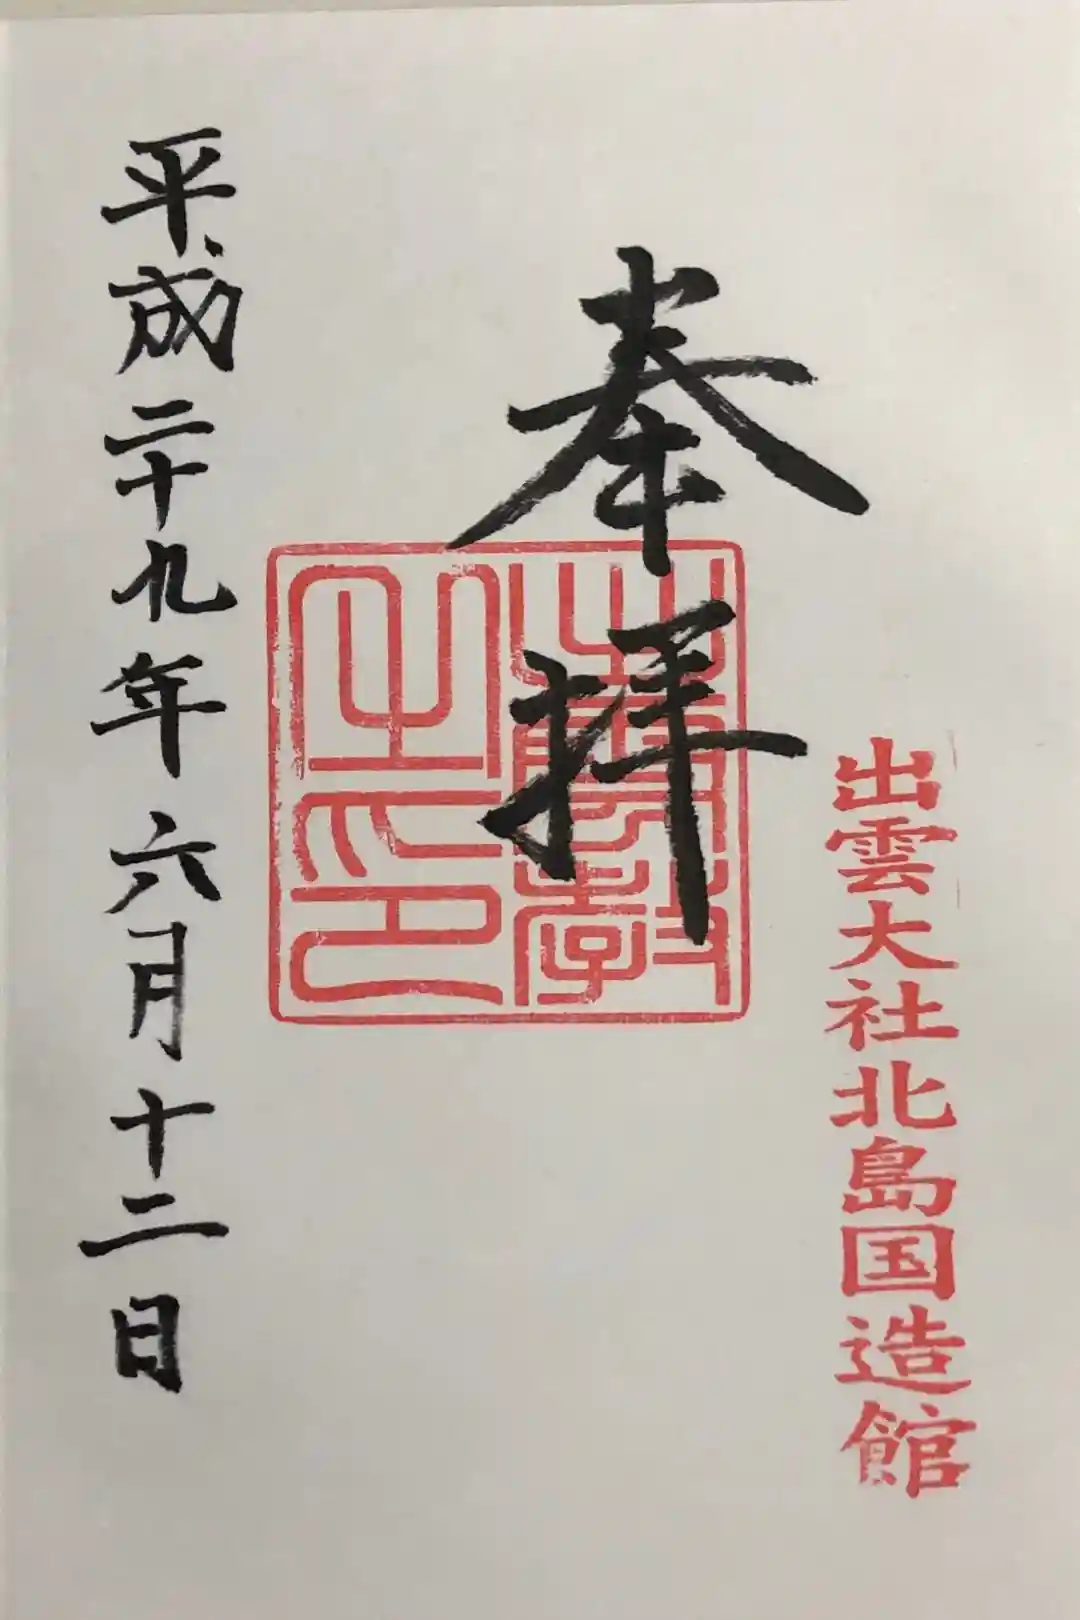 奉拝
出雲大社北島国造館
平成二十九年六月十二日